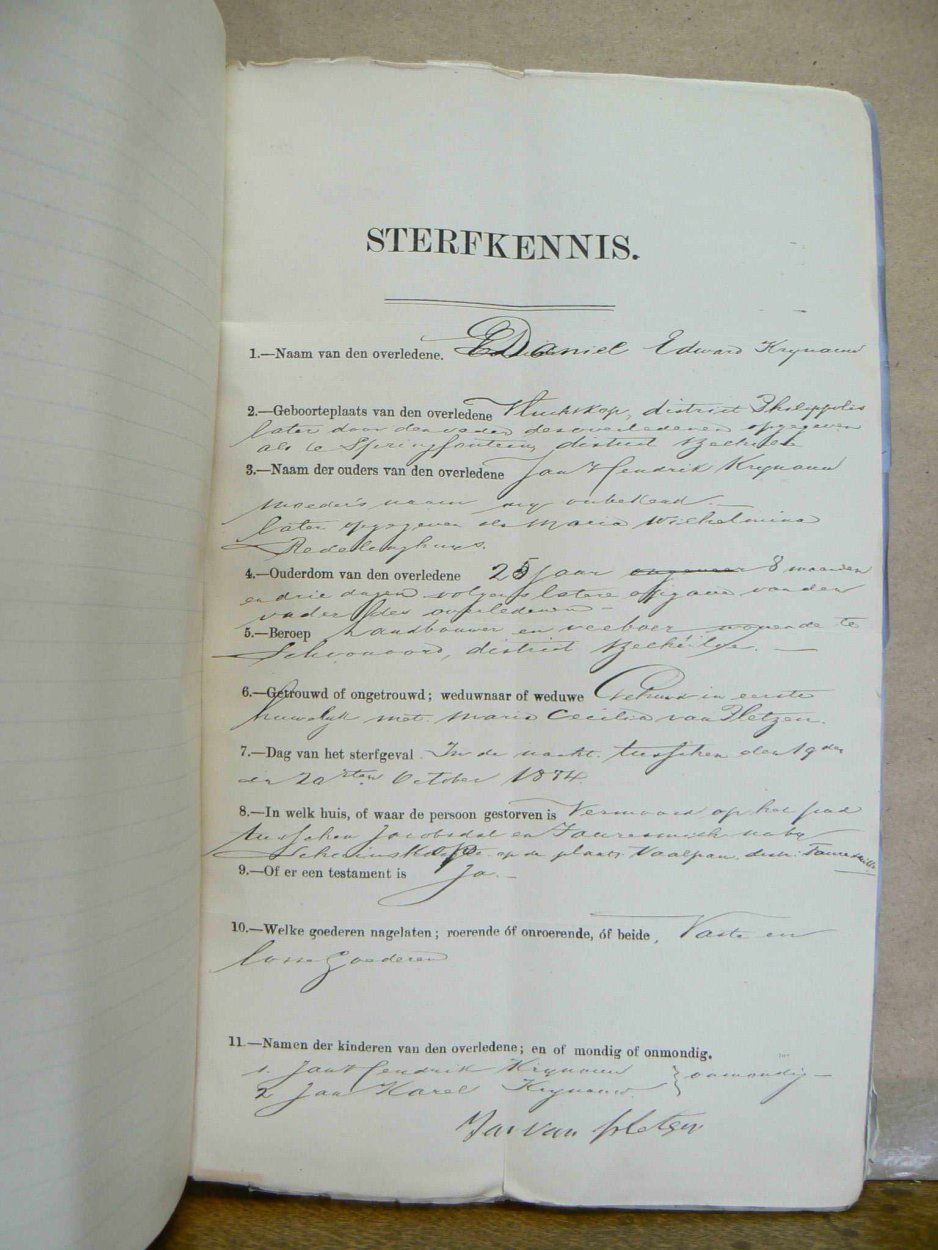 STERFKENNIS.
1.—Naam van den overledene. Daniel Edward Krynauw
2.—Geboorteplaats van den overledene Vluchtkop, district Philippolis
later door den vader des overledenen opgegeven
als te Springfontein, district
3.—Naam der ouders van den overledene Jan Hendrik Krynauw
moeder's naam my onbekend
later opgegeven als Maria Wilhelmina
Redelinghuys.
4.—Ouderdom van den overledene 25 jaar ongeveer 8 maanden
en drie dagen volgens latere opgave van den
vader des overledenen –
5.—Beroep Landbouwer en veeboer, wonende te
Schoonoord, district
6.—Getrouwd of ongetrouwd; weduwnaar of weduwe Gehuwd in eerste
huwelyk met Maria Cecilia van Pletzen.
7.—Dag van het sterfgeval In de nacht tusschen den 19den
en 20sten October 1874
8.—In welk huis, of waar de persoon gestorven is Vermoord op het pad
tusschen Jacobsdal en Fauresmith naby
op de plaats Vaalpan, distr. Fauresmith
9.—Of er een testament is Ja.—
10.—Welke goederen nagelaten; roerende óf onroerende, óf beide, Vaste en
losse goederen
11.—Namen der kinderen van den overledene; en of mondig of onmondig.
1. Jan Hendrik Krynauw } onmondig —
2 Jan Karel Krynauw
Jas van Pletsen